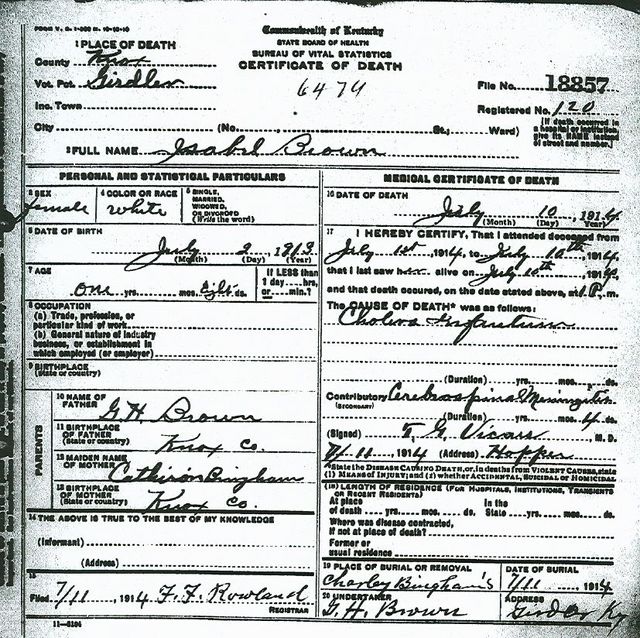 FORM V. S. 1-
Commonwealth of Kentucky
STATE BOARD OF HEALTH
BUREAU OF VITAL STATISTICS
CERTIFICATE OF DEATH
1 PLACE OF DEATH
County Knox
Vot. Pct. Girdler
Inc. Town
City (No. St.; Ward)
6474
File No. 18857
Registered No. 120
[If death occurred in a hospital or institution give its NAME instead of street and number.]
2 FULL NAME Isabil Brown
PERSONAL AND STATISTICAL PARTICULARS
3 SEX female
4 COLOR OR RACE white
5 SINGLE, MARRIED, WIDOWED, OR DIVORCED (Write the word)
6 DATE OF BIRTH
July 2, 1913
(Month) (Day) (Year)
7 AGE
one yrs. mos. Eight ds.
If LESS than 1 day hrs. or min.?
8 OCCUPATION
(a) Trade, profession, or particular kind of work
(b) General nature of industry business, or establishment in which employed (or employer)
9 BIRTHPLACE
(State or country)
PARENTS
10 NAME OF FATHER G H Brown
11 BIRTHPLACE OF FATHER (State or country) Knox Co.
12 MAIDEN NAME OF MOTHER Bingham
13 BIRTHPLACE OF MOTHER (State or country) Knox Co.
14 THE ABOVE IS TRUE TO THE BEST OF MY KNOWLEDGE
(Informant)
(Address)
15
Filed 7/11, 1914 F. F. Rowland
REGISTRAR
11-6184
MEDICAL CERTIFICATE OF DEATH
16 DATE OF DEATH
July 10, 1914
(Month) (Day) (Year)
17 I HEREBY CERTIFY, That I attended deceased from
July 1st, 1914, to July 10th, 1914,
that I last saw h alive on July 10th, 1914,
and that death occurred, on the date stated above, at 1 P. m.
The CAUSE OF DEATH* was as follows:
Cholera Infantum
(Duration) yrs. mos. ds.
Contributory Cerebrospinal Meningitis
(SECONDARY)
(Duration) yrs. mos. 4 ds.
(Signed) T. G. Vicars M. D.
7/11, 1914 (Address) Hopper
*State the DISEASE CAUSING DEATH, or, in deaths from VIOLENT CAUSES, state (1) MEANS OF INJURY; and (2) whether ACCIDENTAL, SUICIDAL or HOMICIDAL
(18) LENGTH OF RESIDENCE (FOR HOSPITALS, INSTITUTIONS, TRANSIENTS OR RECENT RESIDENTS)
At place of death yrs. mos. ds. In the State yrs. mos. ds.
Where was disease contracted, if not at place of death?
Former or usual residence
19 PLACE OF BURIAL OR REMOVAL
Charley Bingham's
DATE OF BURIAL
7/11 1914
20 UNDERTAKER
G. H. Brown
ADDRESS
Girdler Ky